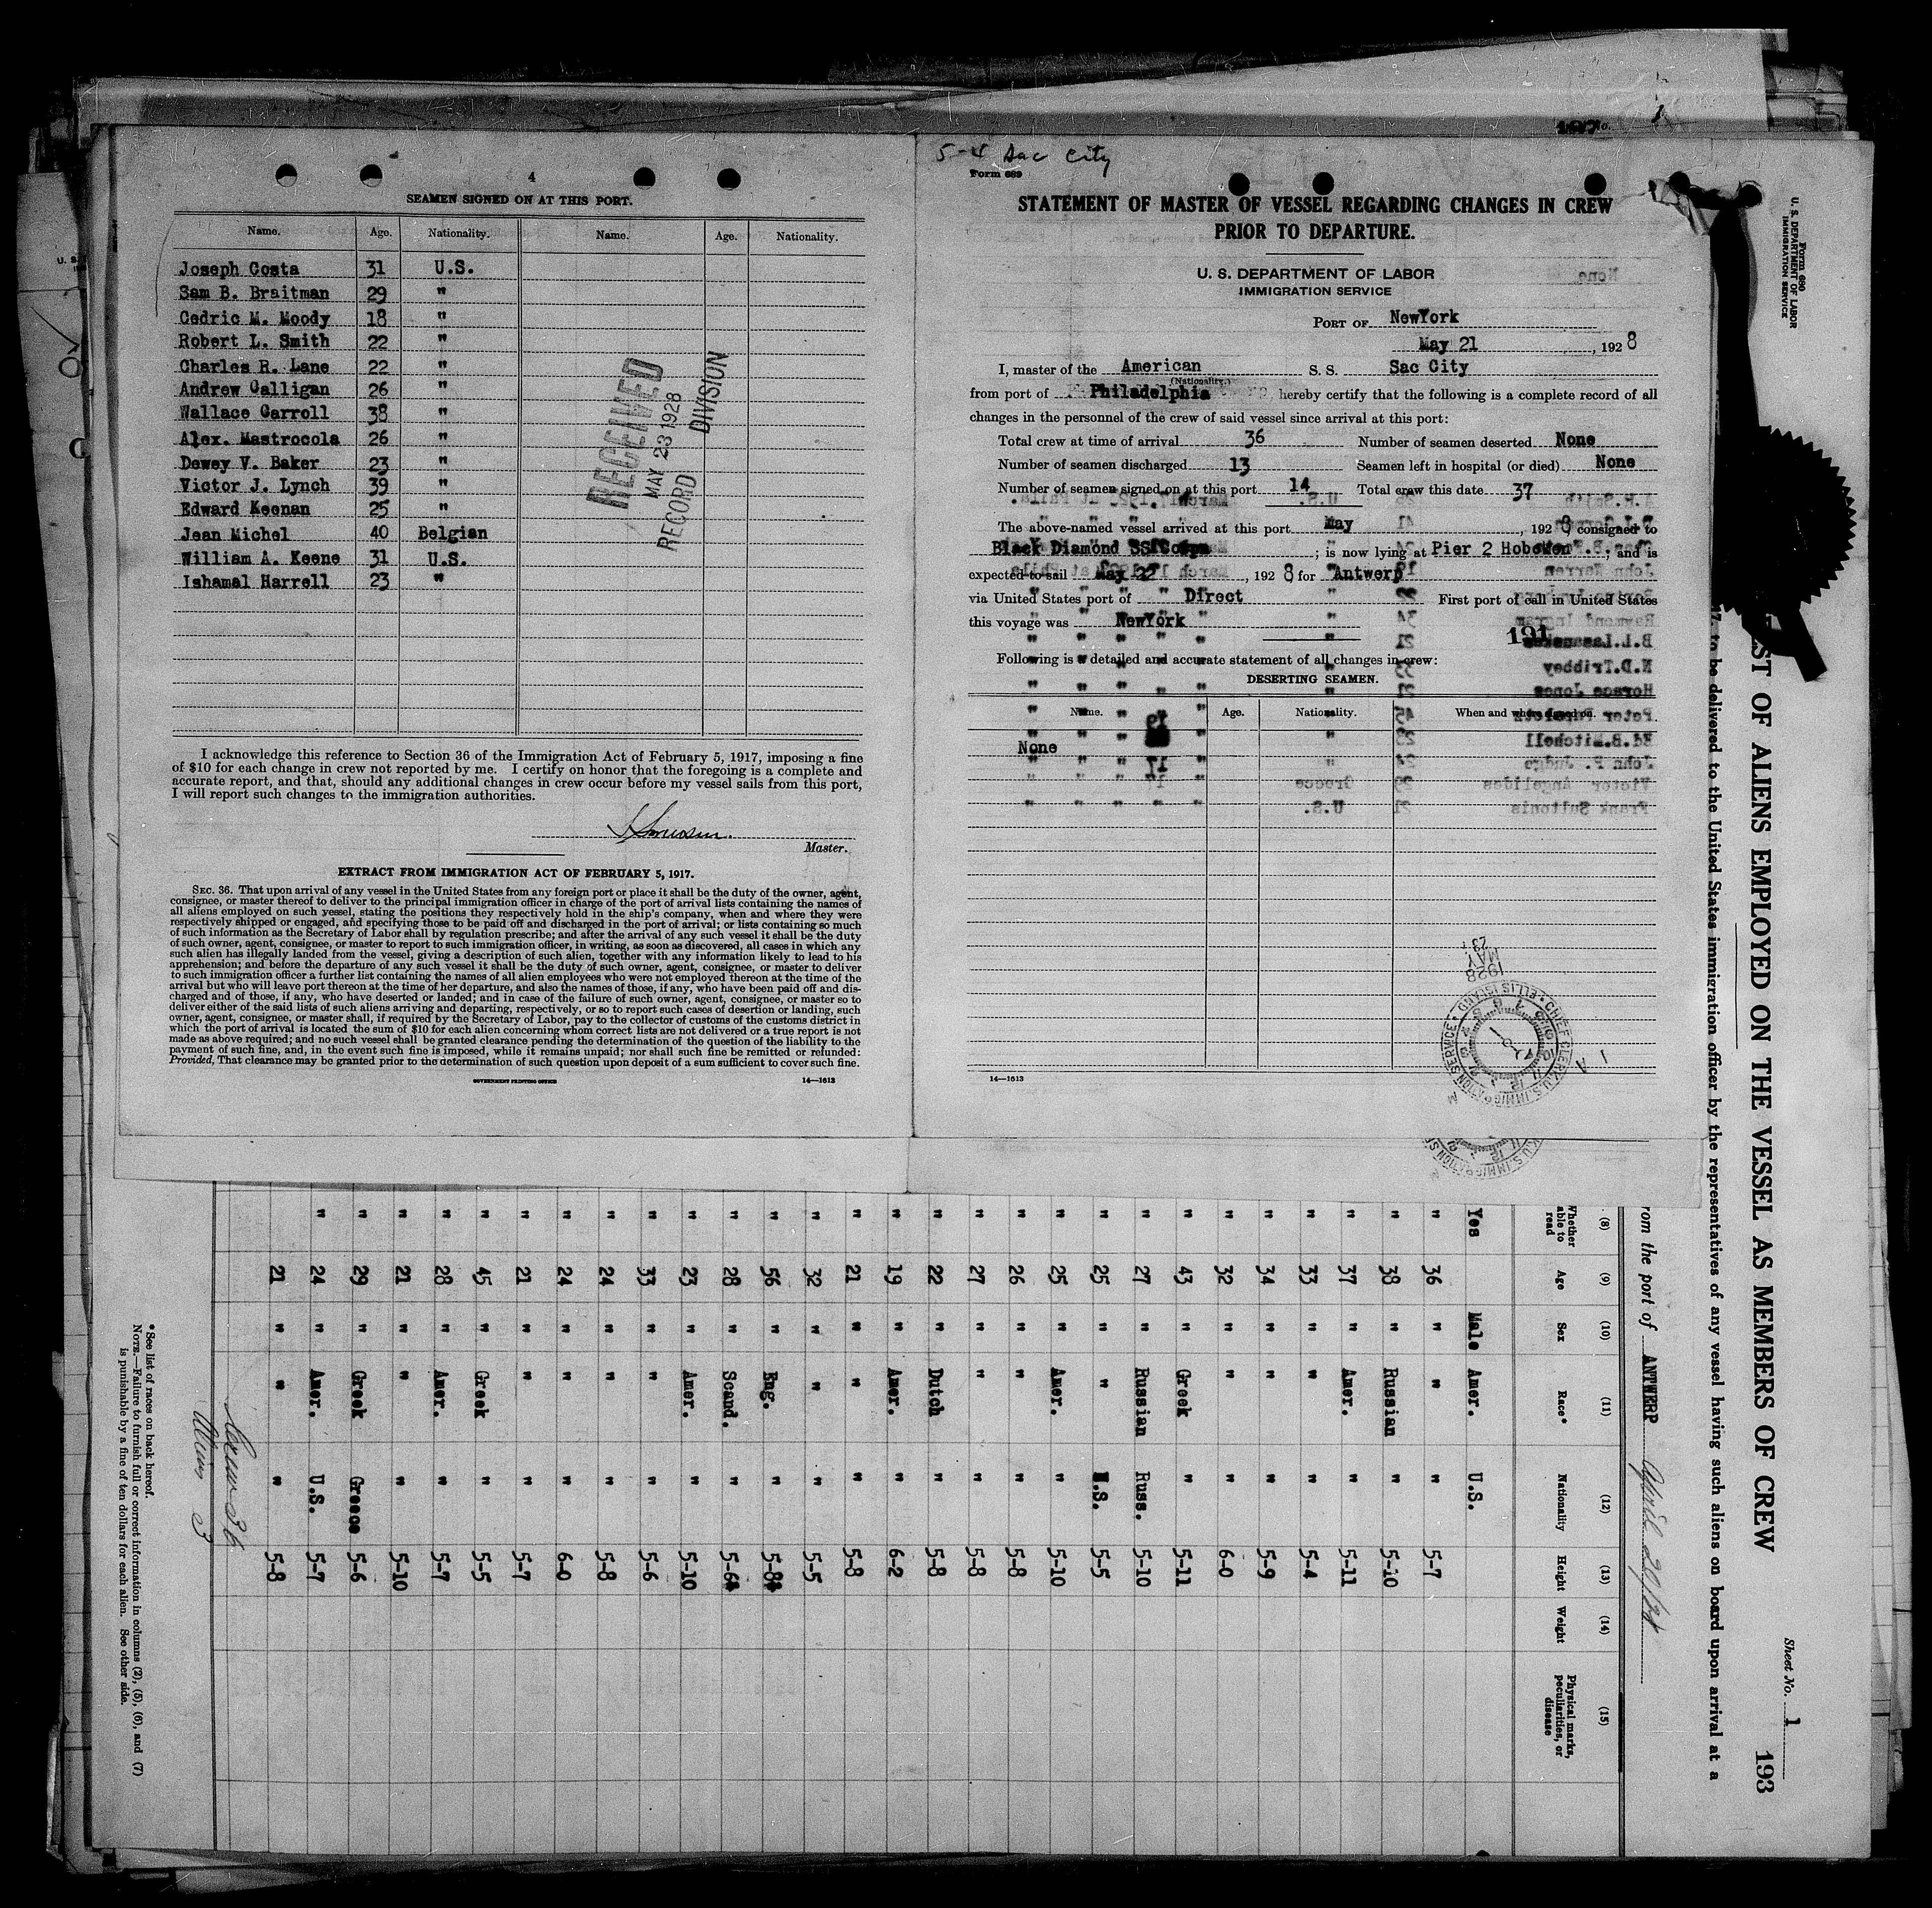 4
SEAMEN SIGNED ON AT THIS PORT.
Name. Age. Nationality. Name. Age. Nationality.
Joseph Costa 31 U.S.
Sam B. Braitman 29 "
Cedric M. Moody 18 "
Robert L. Smith 22 "
Charles R. Lane 22 "
Andrew Galligan 26 "
Wallace Carroll 38 "
Alex. Mastrocola 26 "
Dewey V. Baker 23 "
Victor J. Lynch 39 "
Edward Keenan 25 "
Jean Michel 40 Belgian
William A. Keene 31 U.S.
Ishamal Harrell 23 "
RECEIVED
MAY 23 1928
RECORD DIVISION
I acknowledge this reference to Section 36 of the Immigration Act of February 5, 1917, imposing a fine
of $10 for each change in crew not reported by me. I certify on honor that the foregoing is a complete and
accurate report, and that, should any additional changes in crew occur before my vessel sails from this port,
I will report such changes to the immigration authorities.
Master.
EXTRACT FROM IMMIGRATION ACT OF FEBRUARY 5, 1917.
SEC. 36. That upon arrival of any vessel in the United States from any foreign port or place it shall be the duty of the owner, agent,
consignee, or master thereof to deliver to the principal immigration officer in charge of the port of arrival lists containing the names of
all aliens employed on such vessel, stating the positions they respectively hold in the ship's company, when and where they were
respectively shipped or engaged, and specifying those to be paid off and discharged in the port of arrival; or lists containing so much
of such information as the Secretary of Labor shall by regulation prescribe; and after the arrival of any such vessel it shall be the duty
of such owner, agent, consignee, or master to report to such immigration officer, in writing, as soon as discovered, all cases in which any
such alien has illegally landed from the vessel, giving a description of such alien, together with any information likely to lead to his
apprehension; and before the departure of any such vessel it shall be the duty of such owner, agent, consignee, or master to deliver
to such immigration officer a further list containing the names of all alien employees who were not employed thereon at the time of the
arrival but who will leave port thereon at the time of her departure, and also the names of those, if any, who have been paid off and dis-
charged and of those, if any, who have deserted or landed; and in case of the failure of such owner, agent, consignee, or master so to
deliver either of the said lists of such aliens arriving and departing, respectively, or so to report such cases of desertion or landing, such
owner, agent, consignee, or master shall, if required by the Secretary of Labor, pay to the collector of customs of the customs district in
which the port of arrival is located the sum of $10 for each alien concerning whom correct lists are not delivered or a true report is not
made as above required; and no such vessel shall be granted clearance pending the determination of the question of the liability to the
payment of such fine, and, in the event such fine is imposed, while it remains unpaid; nor shall such fine be remitted or refunded:
Provided, That clearance may be granted prior to the determination of such question upon deposit of a sum sufficient to cover such fine.
GOVERNMENT PRINTING OFFICE 14—1613
5-4 Sac City
Form 689
STATEMENT OF MASTER OF VESSEL REGARDING CHANGES IN CREW
PRIOR TO DEPARTURE.
U. S. DEPARTMENT OF LABOR
IMMIGRATION SERVICE
PORT OF NewYork
May 21, 1928
I, master of the American S. S. Sac City
(Nationality.)
from port of Philadelphia hereby certify that the following is a complete record of all
changes in the personnel of the crew of said vessel since arrival at this port:
Total crew at time of arrival 36 Number of seamen deserted None
Number of seamen discharged 13 Seamen left in hospital (or died) None
Number of seamen signed on at this port 14 Total crew this date 37
The above-named vessel arrived at this port May, 1928, consigned to
Black Diamond SS Corpn; is now lying at Pier 2 Hoboken, and is
expected to sail May 22, 1928 for Antwerp
via United States port of Direct First port of call in United States
this voyage was NewYork
191
Following is a detailed and accurate statement of all changes in crew:
DESERTING SEAMEN.
Name. Age. Nationality. When and where signed on.
None
14—1613
1928
MAY 23
CHIEF CLERK U.S. IMMIGRATION SERVICE ELLIS ISLAND
Form 680
U. S. DEPARTMENT OF LABOR
IMMIGRATION SERVICE
Sheet No. 1
193
LIST OF ALIENS EMPLOYED ON THE VESSEL AS MEMBERS OF CREW
to be delivered to the United States immigration officer by the representatives of any vessel having such aliens on board upon arrival at a
from the port of ANTWERP
(8) (9) (10) (11) (12) (13) (14) (15)
Whether able to read Age Sex Race* Nationality Height Weight Physical marks, peculiarities, or disease
Yes Male Amer. U.S.
" 36 " " " 5-7
" 38 " Russian " 5-10
" 37 " Amer. " 5-11
" 33 " " " 5-4
" 34 " " " 5-9
" 32 " " " 6-0
" 43 " Greek " 5-11
" 27 " Russian Russ. 5-10
" 25 " " U.S. 5-5
" 25 " Amer. " 5-10
" 26 " " " 5-8
" 27 " " " 5-8
" 22 " Dutch " 5-8
" 19 " Amer. " 6-2
" 21 " " " 5-8
" 32 " " " 5-5
" 56 " Eng. " 5-8
" 28 " Scand. " 5-6
" 23 " Amer. " 5-10
" 33 " " " 5-6
" 24 " " " 5-8
" 24 " " " 6-0
" 21 " " " 5-7
" 45 " Greek " 5-5
" 28 " Amer. " 5-7
" 21 " " " 5-10
" 29 " Greek Greece 5-6
" 24 " Amer. U.S. 5-7
21 " " " 5-8
Crew 36
Aliens 3
*See list of races on back hereof.
NOTE.—Failure to furnish full or correct information in columns (2), (5), (6), and (7)
is punishable by a fine of ten dollars for each alien. See other side.